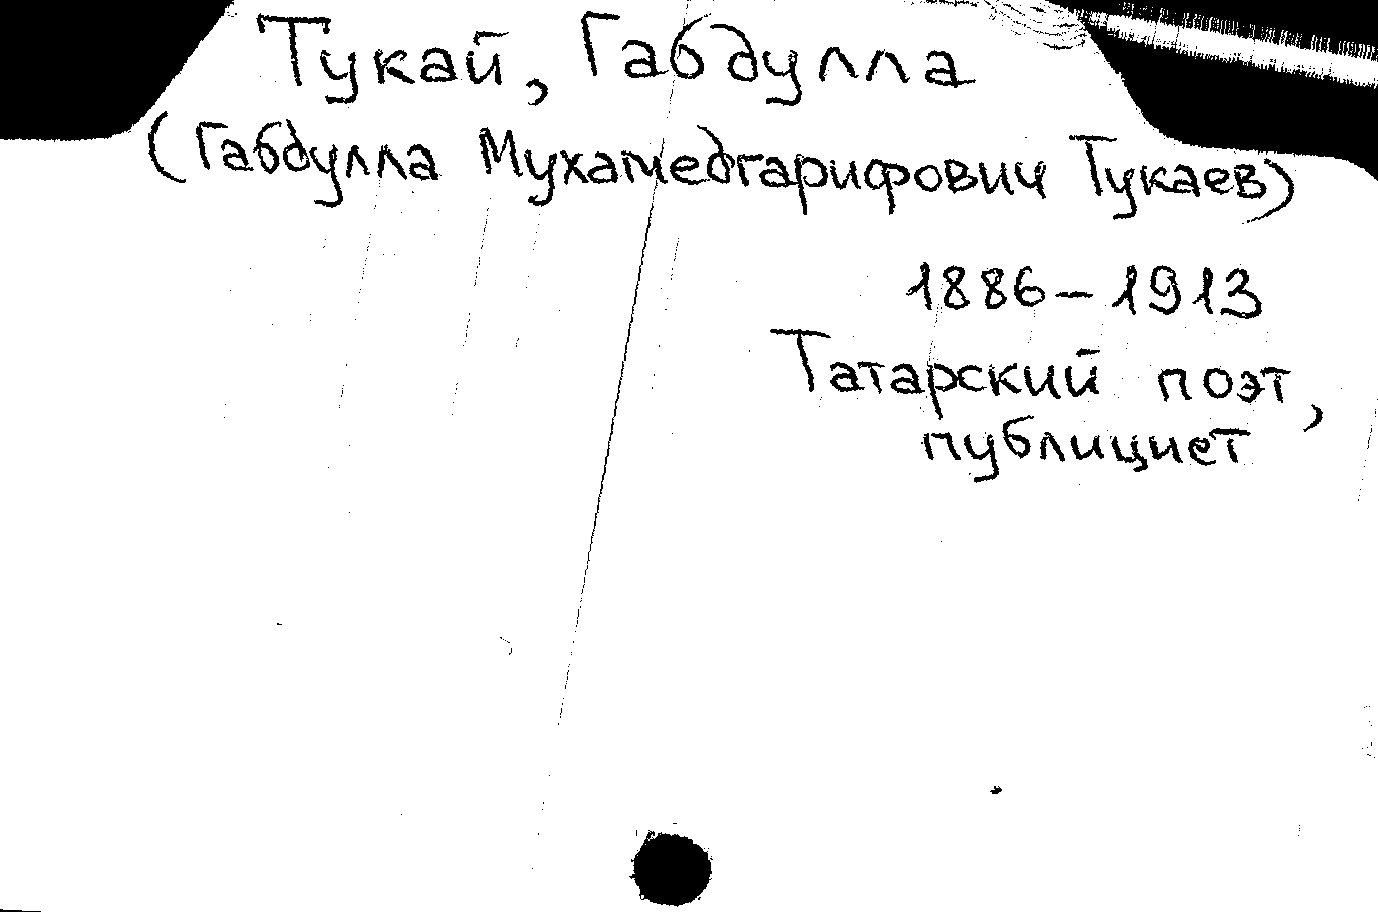 Тукай, Габдулла
(Габдулла Мухамедгарифович Тукаев)
1886–1913
Татарский поэт,
публицист